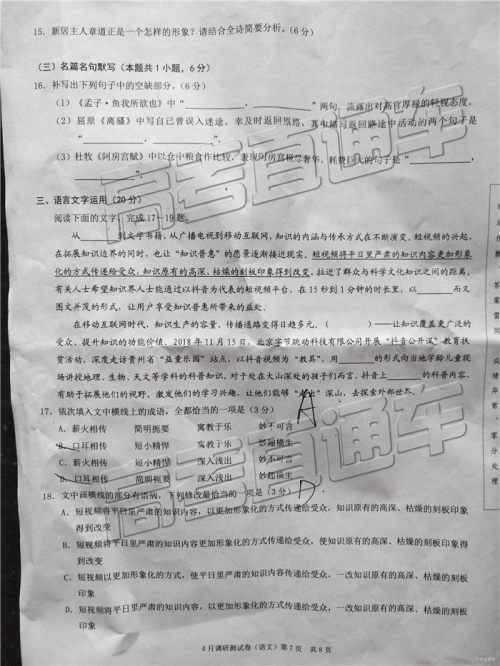 15. 新居主人章道正是一个怎样的形象？请结合全诗简要分析。（6分）
（三）名篇名句默写（本题共1小题，6分）
16. 补写出下列句子中的空缺部分。（6分）
（1）《孟子·鱼我所欲也》中“________，________”两句，流露出对高官厚禄的轻视态度。
（2）屈原《离骚》中写自己曾误入迷途，幸及时返回原路，其中描写返回路途中活动的两个句子是
“________，________”。
（3）杜牧《阿房宫赋》中以仓中粮食作比较，表现阿房宫极尽奢华、耗费巨大的句子是“________，
________”。
三、语言文字运用（20分）
阅读下面的文字，完成17～19题。
从________到文字书籍，从广播电视到移动互联网，知识的内涵与传承方式在不断演变。短视频的兴起，
在拓展知识边界的同时，也让“知识普惠”的愿景逐渐接近现实。短视频将平日里严肃的知识内容更加形象
化的方式传递给受众，知识原有的高深、枯燥的刻板印象得到改变，拉近了群众与科学文化知识之间的距离。
有关人士希望知识界人士能通过以抖音为代表的短视频平台，在15秒到1分钟的时长里，以________而又
图文并茂的形式，让用户享受知识普惠所带来的益处。
在移动互联网时代，知识生产的容量、传播通路变得日趋多元。（　　　）——让知识覆盖更广泛的
受众，提升知识的功能价值。2018年11月15日，北京字节跳动科技有限公司开展“抖音公开课”教育扶
贫活动，深度走访贵州省“益童乐园”站点，以抖音视频为“教具”，用________的形式向当地学龄儿童现
场讲授地理、生物、天文等学科的科普知识。对于处在大山深处的孩子们而言，抖音上________的科普内容，
有助于拓展他们的视野，激发他们的学习兴趣，让他们能够“走出”深山，去探索外部世界。
17. 依次填入文中横线上的成语，全都恰当的一项是（3分） A
A．薪火相传 简明扼要 寓教于乐 妙不可言
B．口耳相传 短小精悍 寓教于乐 妙趣横生
C．薪火相传 短小精悍 深入浅出 妙不可言
D．口耳相传 简明扼要 深入浅出 妙趣横生
18. 文中画横线的部分有语病，下列修改最恰当的一项是（3分） D
A．短视频将平日里严肃的知识内容，以更加形象化的方式传递给受众，知识原有的高深、枯燥的刻板印象
得到改变
B．短视频将平日里严肃的知识内容更加形象化的方式传递给受众，使知识原有的高深、枯燥的刻板印象得
到改变
C．短视频以更加形象化的方式，使平日里严肃的知识内容传递给受众，一改知识原有的高深、枯燥的刻板
印象
D．短视频将平日里严肃的知识内容，以更加形象化的方式传递给受众，一改知识原有的高深、枯燥的刻板
印象
4月调研测试卷（语文）第7页 共8页
高考直通车
高考直通车